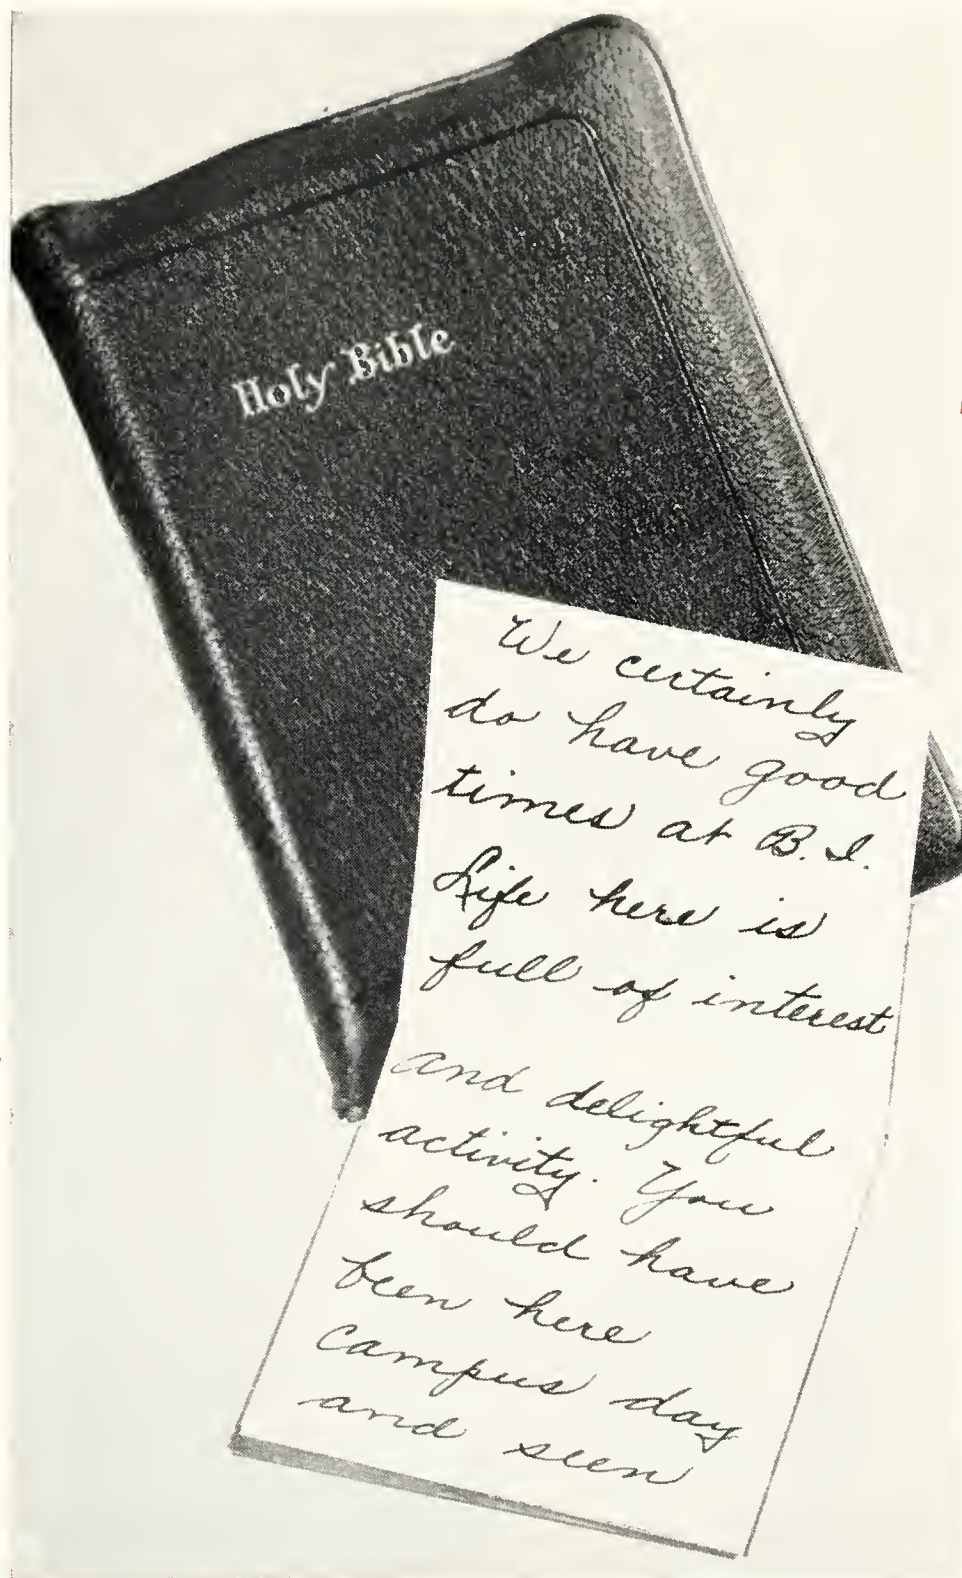 Holy Bible
We certainly
do have good
times at B.I.
Life here is
full of interest
and delightful
activity. You
should have
been here
campus day
and seen